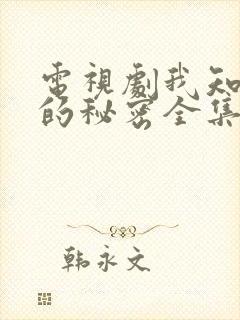 電視劇我知
的秘密全集
韩永文